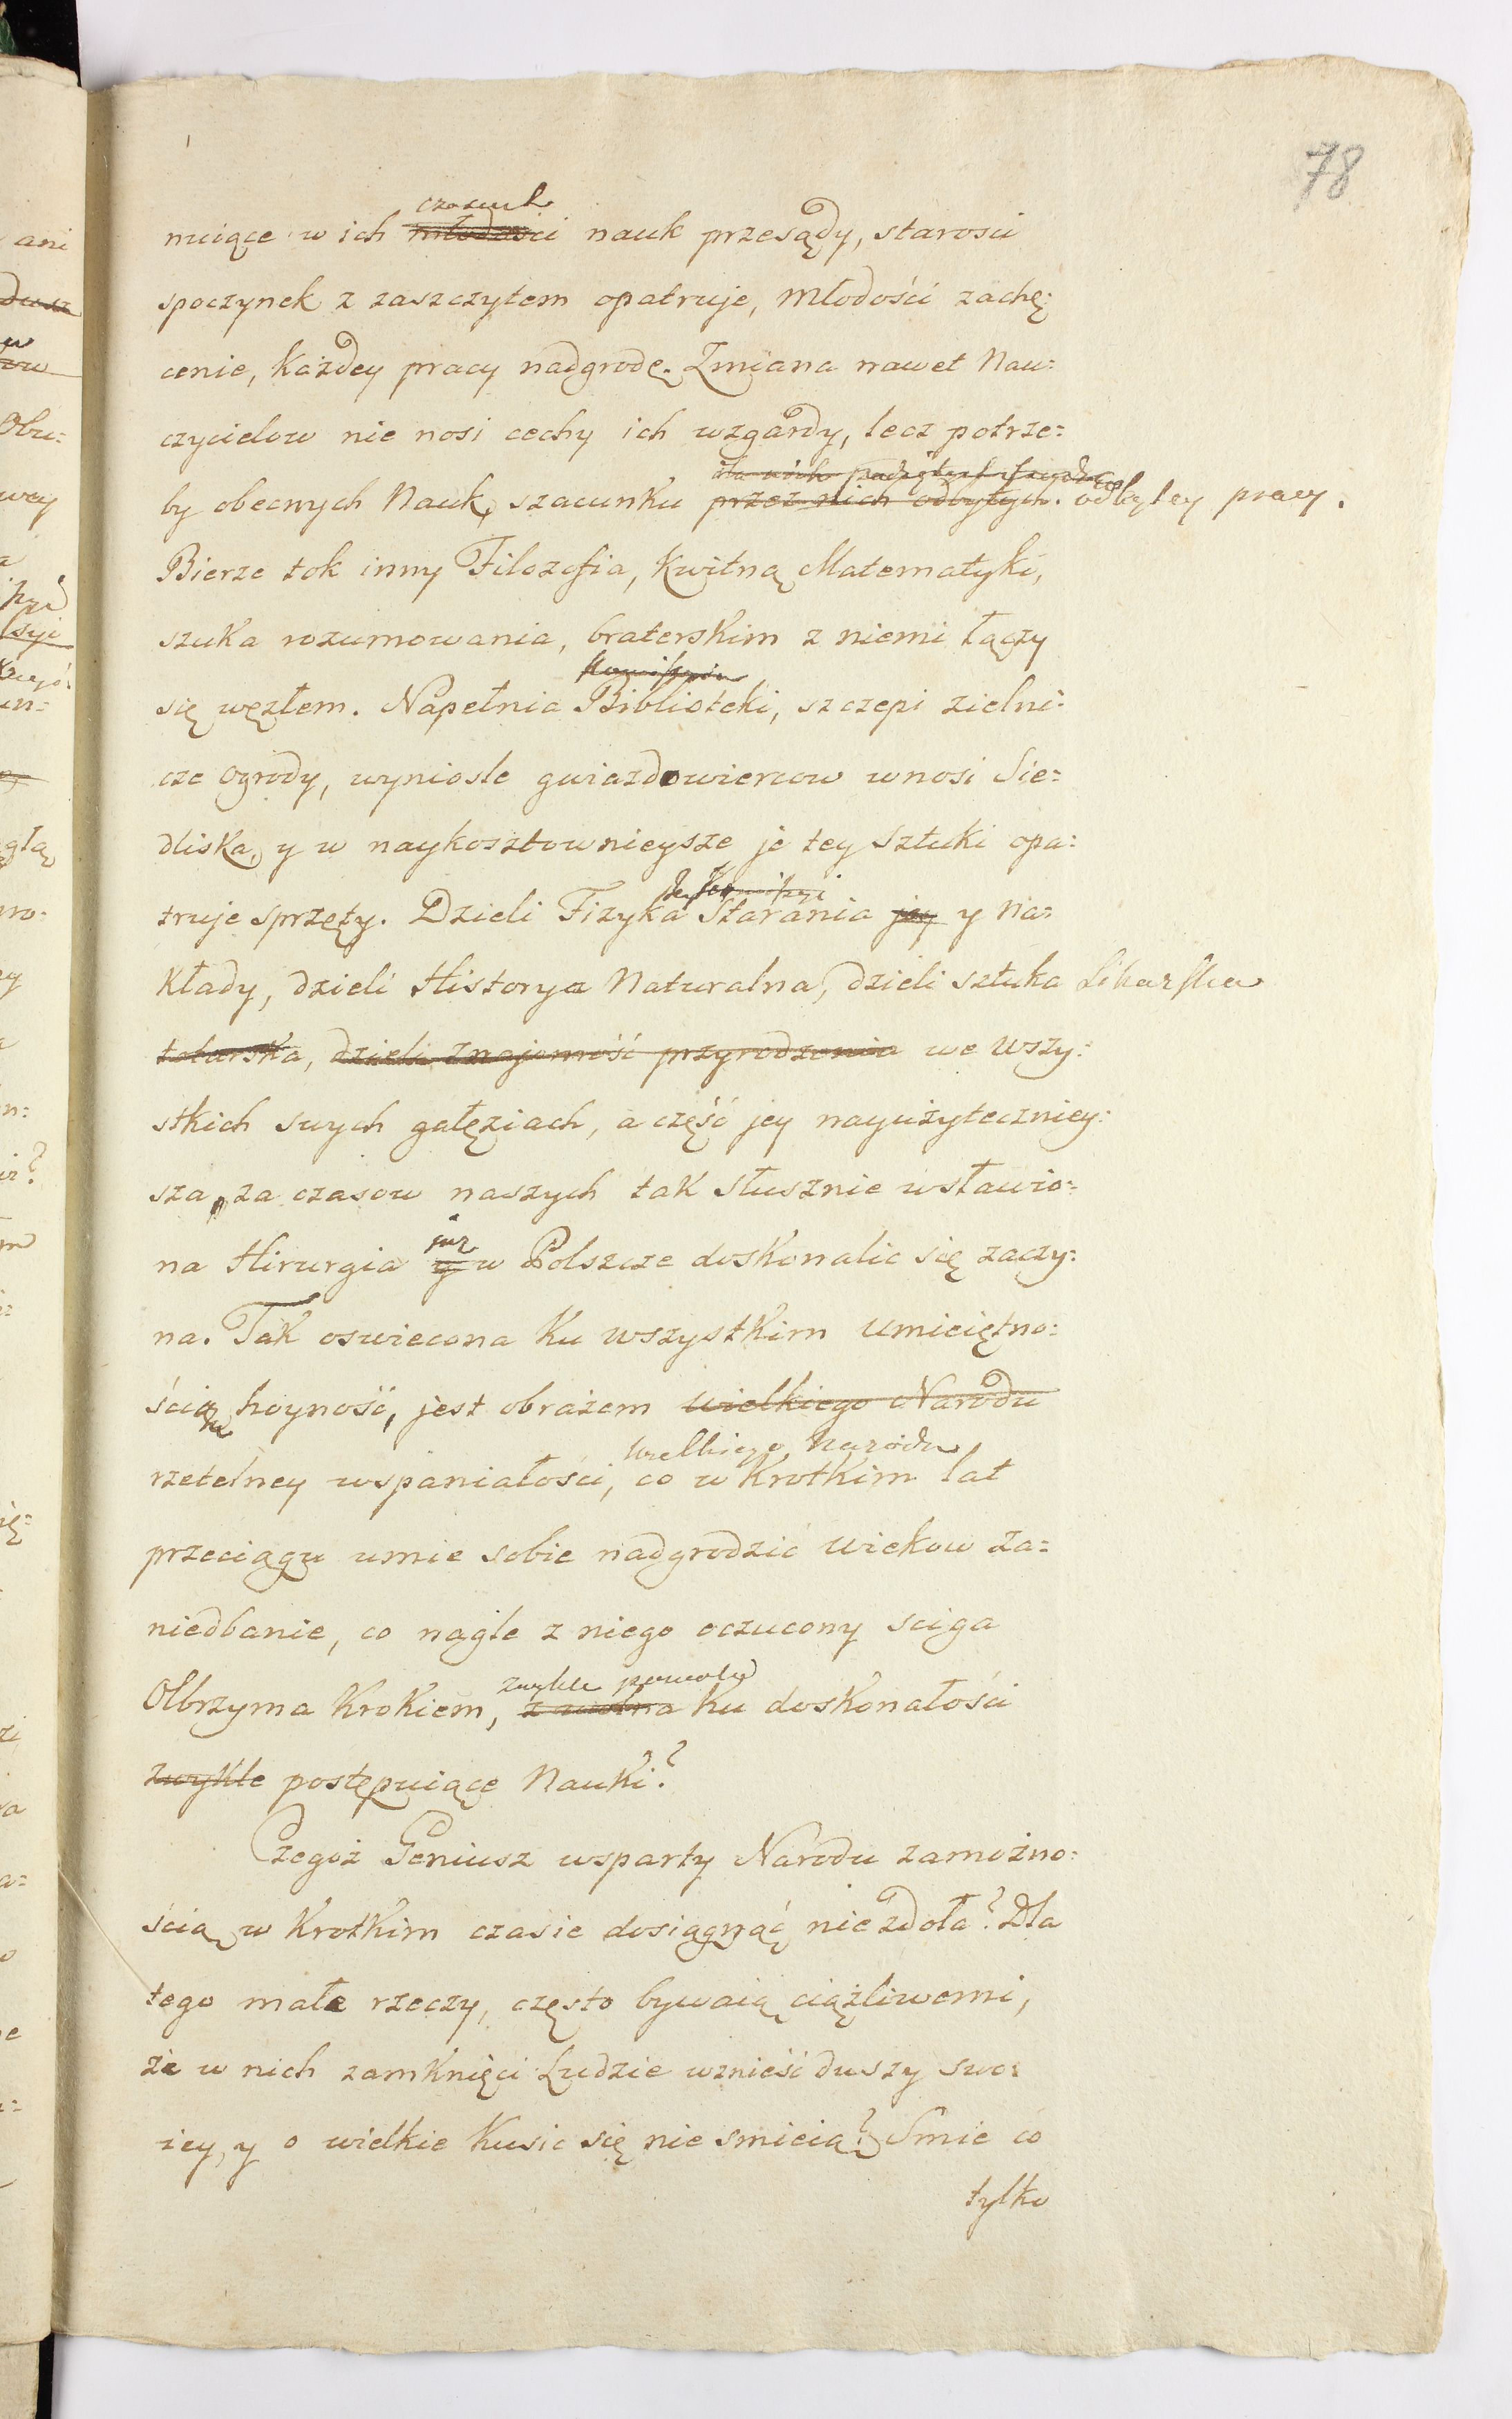 78
czasach
nuiące w ich młodości nauk przesądy, starosci
spoczynek z zaszczytem opatruje, młodości zachę:
cenie, każdey pracy nadgrodę. Zmiana nawet Nau:
czycielow nie nosi cechy ich wzgardy, lecz potrze:
by obecnych Nauk, szacunku przez nich odbytych. odbytey pracy.
Bierze tok inny Filozofia, kwitną Matematyki,
szuka rozumowania, braterskim z niemi łączy
się węzłem. Napełnia Biblioteki, szczepi zielni:
cze ogrody, wyniosle gwiazdowiercow wnosi Sie:
dliska, y w naykosztownieysze je tey sztuki opa:
truje sprzęty. Dzieli Fizyka Starania jey y na:
kłady, dzieli Historya Naturalna, dzieli sztuka Likarska
, dzieli znajomość przyrodzenia we wszy:
stkich swych gałęziach, a część jey nayużyteczniey:
sza, za czasow naszych tak słusznie wsławio:
już
na Hirurgia y w Polszcze doskonalic się zaczy:
na. Tak oswiecona ku wszystkim umieiętno:
ścią hoyność, jest obrazem wielkiego Narodu
wielkiego Narodu
rzetelney wspaniałości, co w krotkim lat
przeciągu umie sobie nadgrodzić wiekow za:
niedbanie, co nagle z niego oczucony sciga
zwykle powoli
Olbrzyma krokiem, z wolna ku doskonałości
zwykle postępuiące Nauki?
Czegoż Geniusz wsparty Narodu zamożno:
ścią w krotkim czasie dosiągnąć nie zdoła? Dla
tego małe rzeczy, często bywaią ciążliwemi,
że w nich zamknięci Ludzie wznieść duszy swo:
iey, y o wielkie kusic się nie smieią? Smie co
tylko